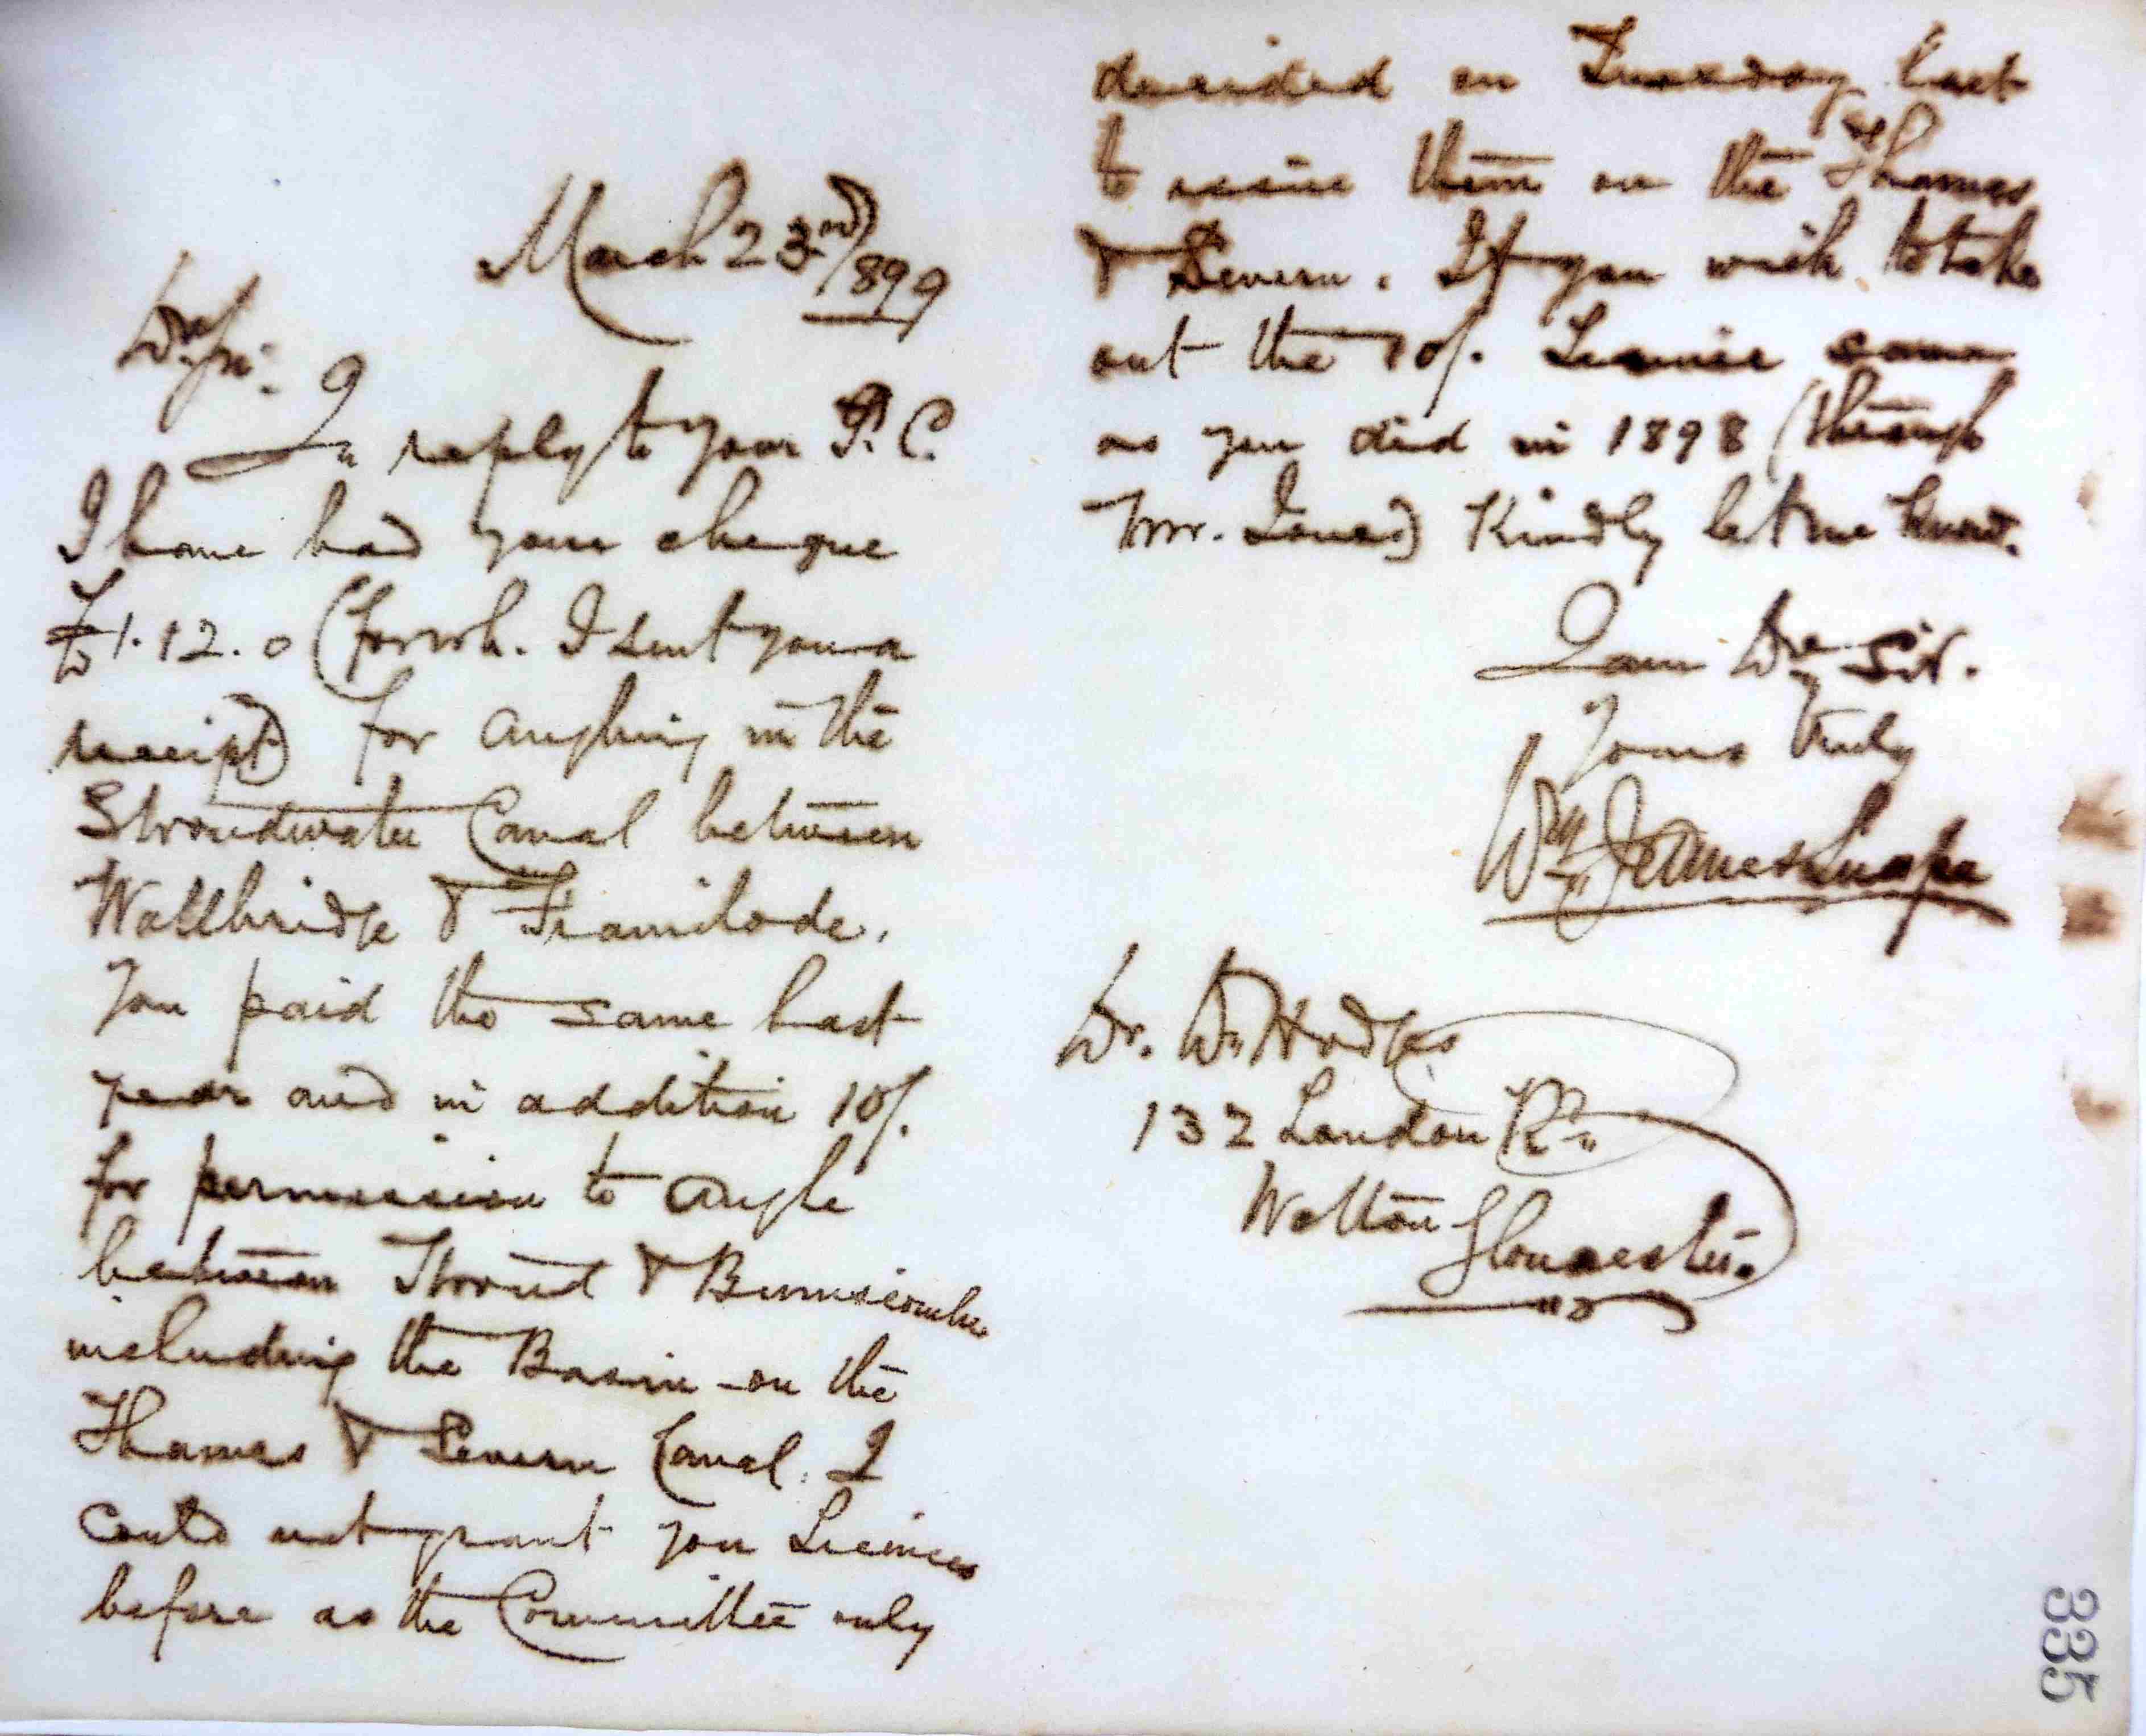 March 23rd/899
Dr Sir.
In reply to your P.C.
I have had your cheque
for £1.12.0 (for wh. I sent you a
receipt) for angling in the
Stroudwater Canal between
Wallbridge & Framilode.
You paid the same last
year and in addition 10/.
for permission to angle
between Stroud & Brimscombe
including the Basin on the
Thames & Severn Canal. I
could not grant you Licences
before as the Committee only
decided on Tuesday last
to issue them on the Thames
& Severn. If you wish to take
out the 10/. Licence same
as you did in 1898 (through
Mr. Jones) Kindly let me know.
I am Dr Sir.
Yours truly
Wm James Snape
Dr. W Hodges
132 London Rd
Wotton Gloucester.
335